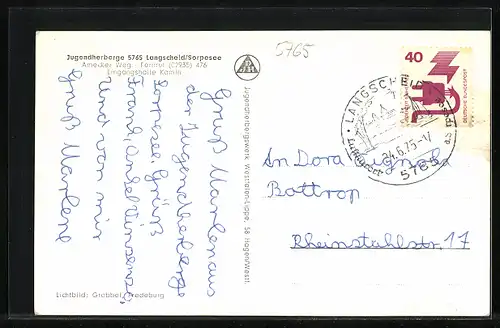 Jugendherberge 5765 Langscheid/Sorpesee
Amecker Weg · Fernruf (02935) 476
Eingangshalle Kamin
5765
Gruß Marlen aus
der Jugendherberge
Sorpesee. Grüß
und von mir
Gruß Marlene
Lichtbild: Grobbel, Fredeburg
Jugendherbergswerk Westfalen-Lippe, 58 Hagen/Westf.
40
DEUTSCHE BUNDESPOST
LANGSCHEID
24.6.75-17
5768
An Dora
Bottrop
Rheinstahlstr. 17